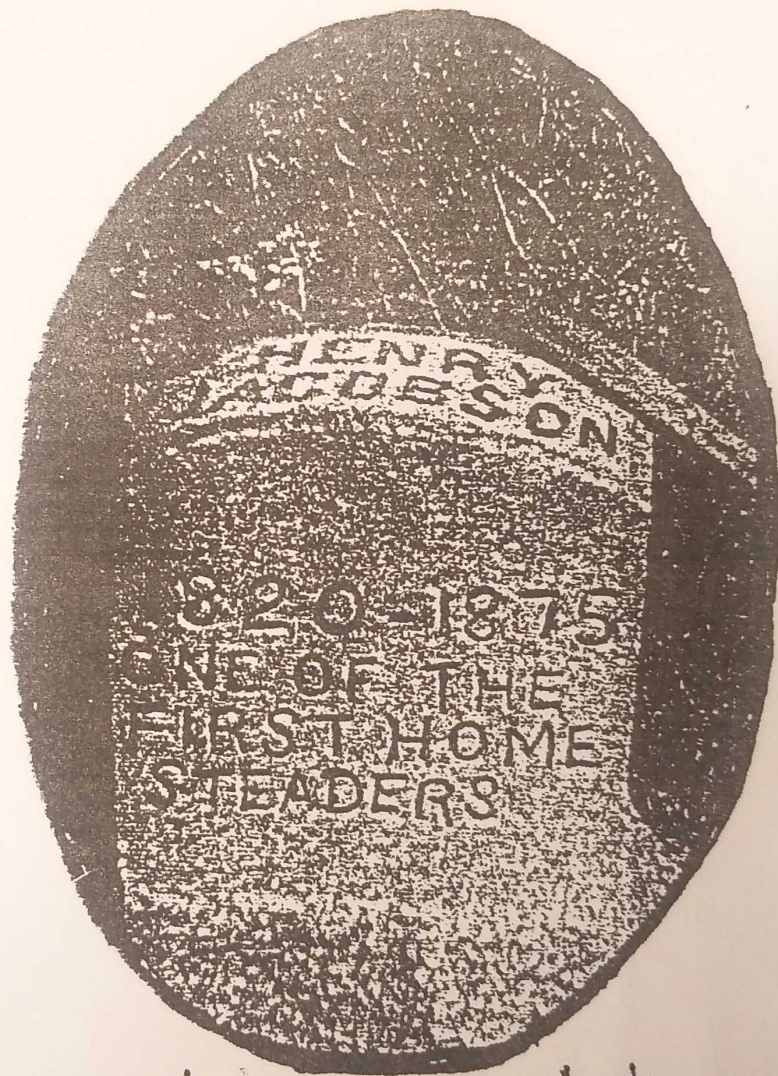 HENRY
JACOBESON
1820-1875
ONE OF THE
FIRST HOME
STEADERS